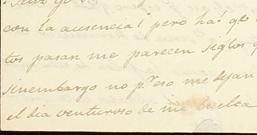 con la ausencia! pero has
tos pasan me parecen siglos
sinembargo no pr eso me dejan
el dia venturoso de mi buelta